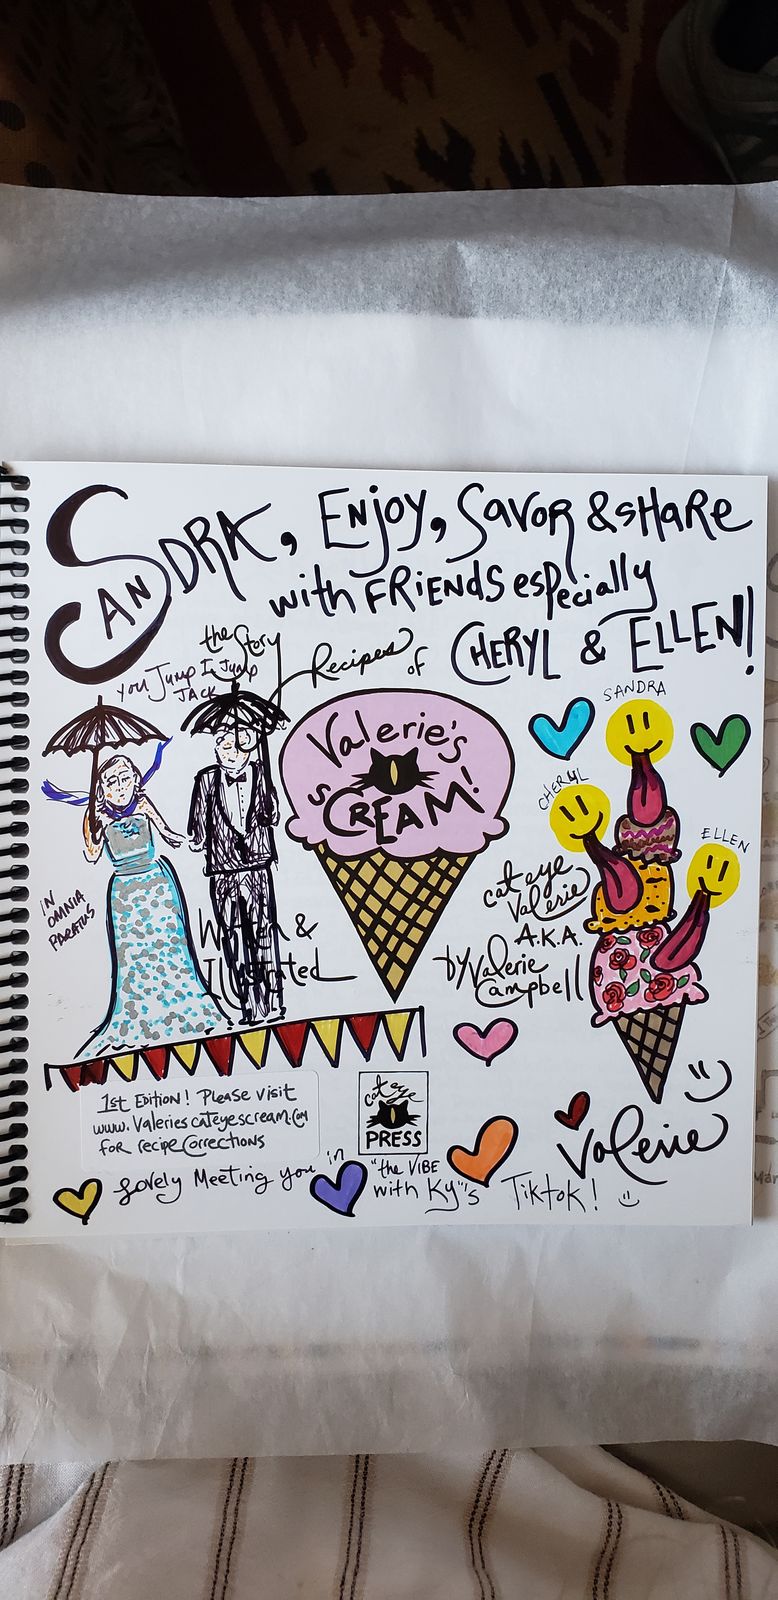 SANDRA, ENJOY, SAVOR & SHARE
with FRIENDS especially
CHERYL & ELLEN!
the Story
Recipes OF
YOU JUMP I JUMP
JACK
Valerie's
sCREAM!
IN
OMNIA
PARATUS
Written &
Illustrated
cat eye
Valerie
A.K.A.
by Valerie
Campbell
SANDRA
CHERYL
ELLEN
1st Edition! Please visit
www.Valeriescateyescream.com
for recipe Corrections
cat eye
PRESS
Valerie
Lovely Meeting you in "the VIBE
with Ky"'s TikTok!